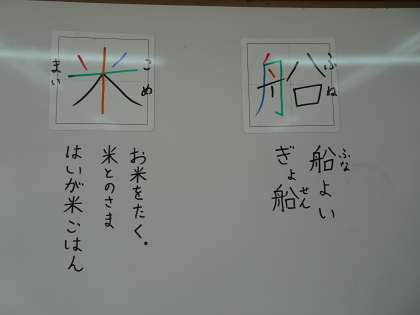 船
ふね
船よい
ふな
ぎょ船
せん
米
こめ
まい
お米をたく。
米とのさま
はいが米ごはん